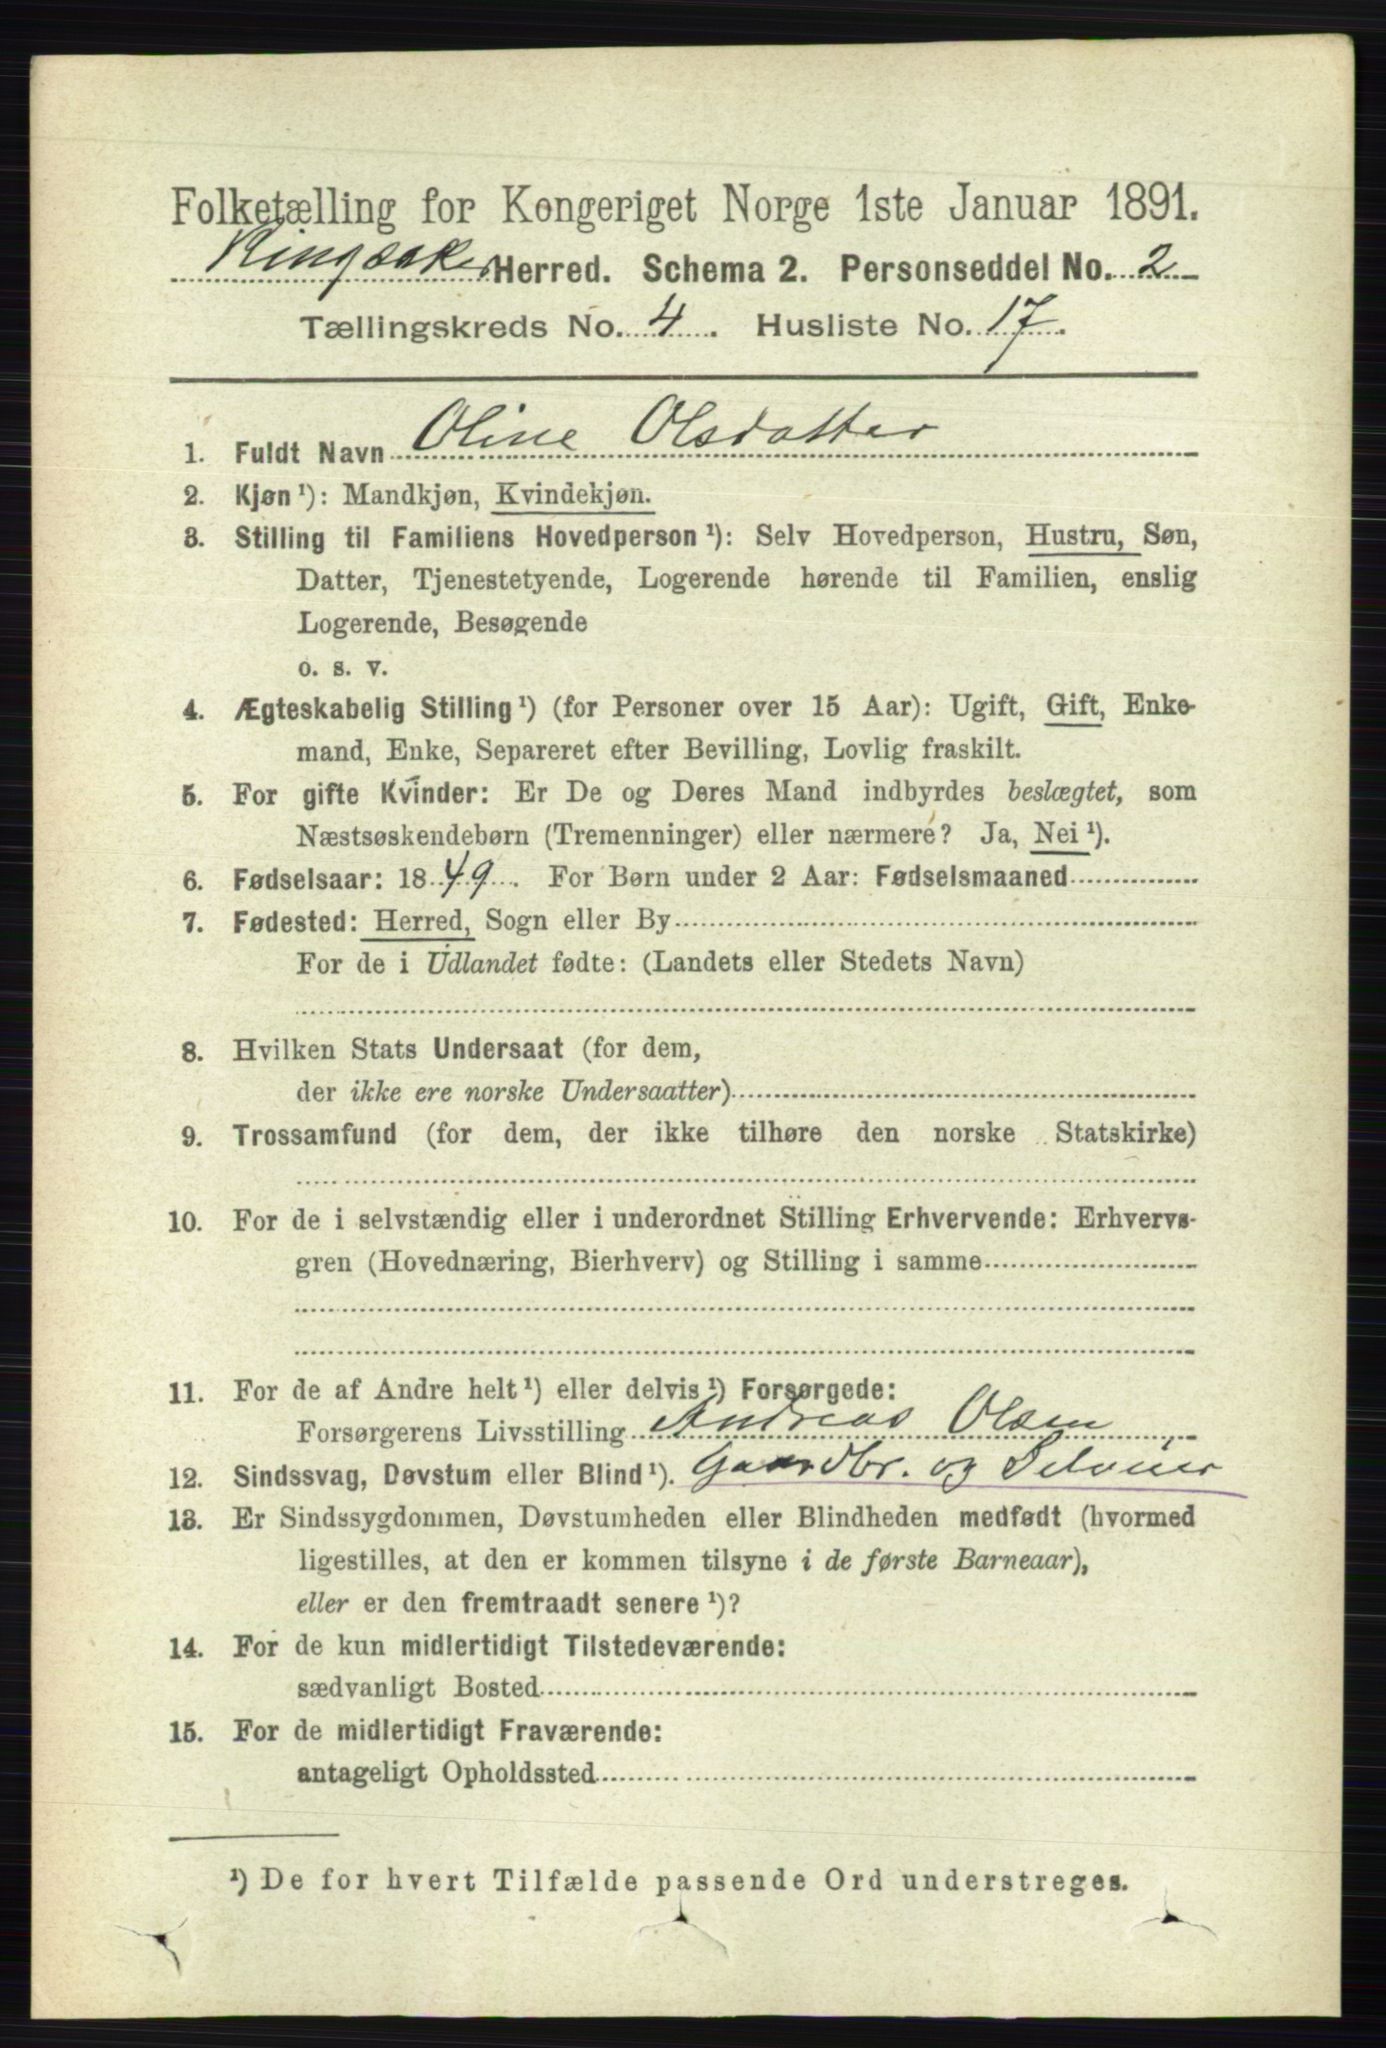 Folketælling for Kongeriget Norge 1ste Januar 1891.
Ringsaker Herred. Schema 2. Personseddel No. 2
Tællingskreds No. 4. Husliste No. 17.
1. Fuldt Navn Oline Olsdatter
2. Kjøn ¹): Mandkjøn, Kvindekjøn.
3. Stilling til Familiens Hovedperson ¹): Selv Hovedperson, Hustru, Søn,
Datter, Tjenestetyende, Logerende hørende til Familien, enslig
Logerende, Besøgende
o. s. v.
4. Ægteskabelig Stilling ¹) (for Personer over 15 Aar): Ugift, Gift, Enke-
mand, Enke, Separeret efter Bevilling, Lovlig fraskilt.
5. For gifte Kvinder: Er De og Deres Mand indbyrdes beslægtet, som
Næstsøskendebørn (Tremenninger) eller nærmere? Ja, Nei ¹).
6. Fødselsaar: 1849. For Børn under 2 Aar: Fødselsmaaned
7. Fødested: Herred, Sogn eller By
For de i Udlandet fødte: (Landets eller Stedets Navn)
8. Hvilken Stats Undersaat (for dem,
der ikke ere norske Undersaatter)
9. Trossamfund (for dem, der ikke tilhøre den norske Statskirke)
10. For de i selvstændig eller i underordnet Stilling Erhvervende: Erhvervs-
gren (Hovednæring, Bierhverv) og Stilling i samme
11. For de af Andre helt ¹) eller delvis ¹) Forsørgede:
Forsørgerens Livsstilling Andreas Olsen
12. Sindssvag, Døvstum eller Blind ¹). Gaardbr. og Seleier
13. Er Sindssygdommen, Døvstumheden eller Blindheden medfødt (hvormed
ligestilles, at den er kommen tilsyne i de første Barneaar),
eller er den fremtraadt senere ¹)?
14. For de kun midlertidigt Tilstedeværende:
sædvanligt Bosted
15. For de midlertidigt Fraværende:
antageligt Opholdssted
¹) De for hvert Tilfælde passende Ord understreges.